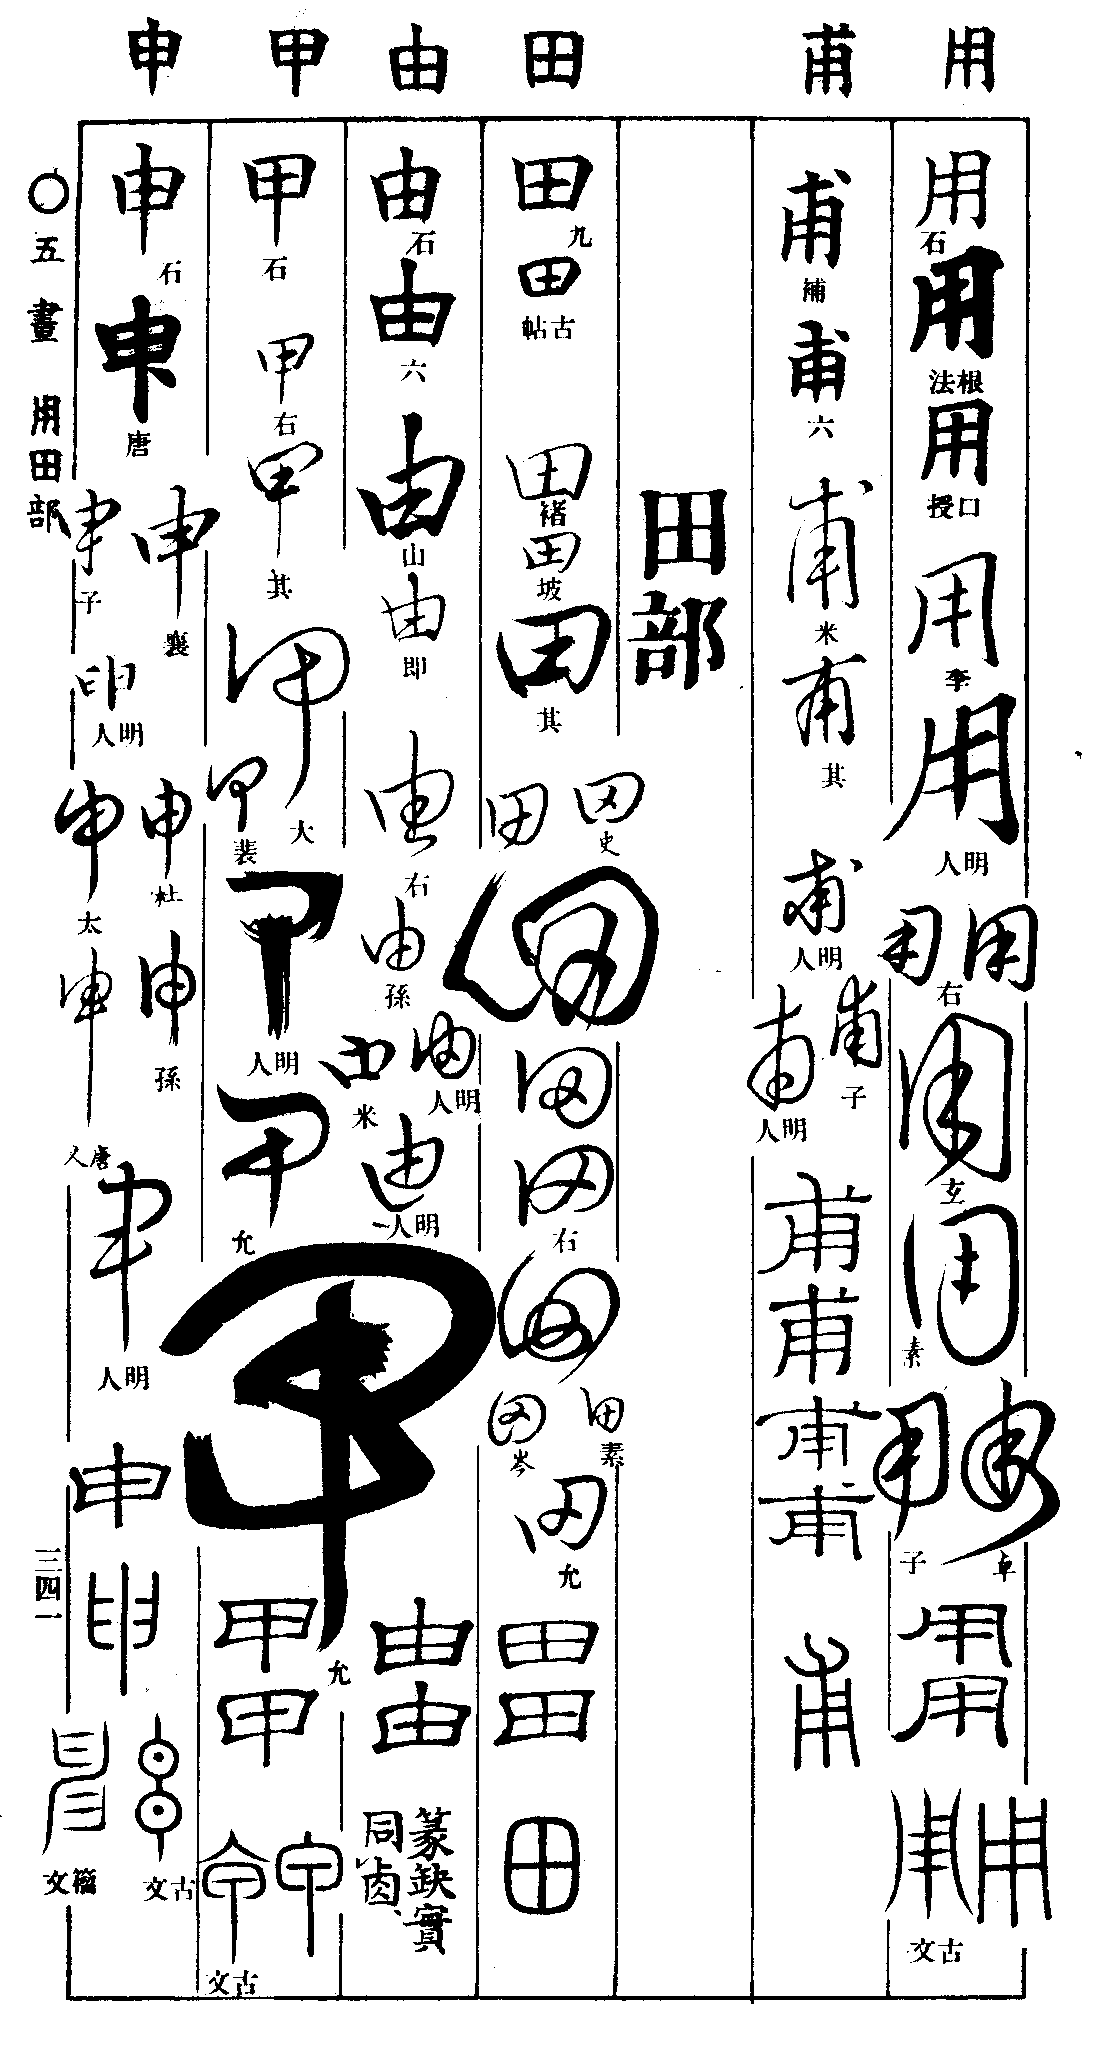 用
用 石
用 根法
用 口授
用 李
用 明人
用 用 右
用 玄
用 素
用 卓
用 子
用
用
用 用 古文
甫
甫 補
甫 六
甫 米
甫 其
甫 明人
甫 子
甫 明人
甫
甫
甫
甫
甫
田部
田
田 九
田 古帖
田 褚
田 坡
田 其
田 史
田
田
田
田 右
田
田 素
田 岑
田 允
田
田
田
由
由 石
由 六
由 山
由 即
由 右
由 孫
由 明人
由 米
由 明人
由
由
篆缺實
同卤、
甲
甲 石
甲 右
甲 其
甲 大
甲 裴
甲 明人
甲 允
甲 允
甲
甲
甲
甲 古文
申
申 石
申 唐
申 襄
申 子
申 明人
申 杜
申 太
申 孫
申 唐人
申 明人
申
申
申 古文
申 籀文
〇五畫 用田部
三四一